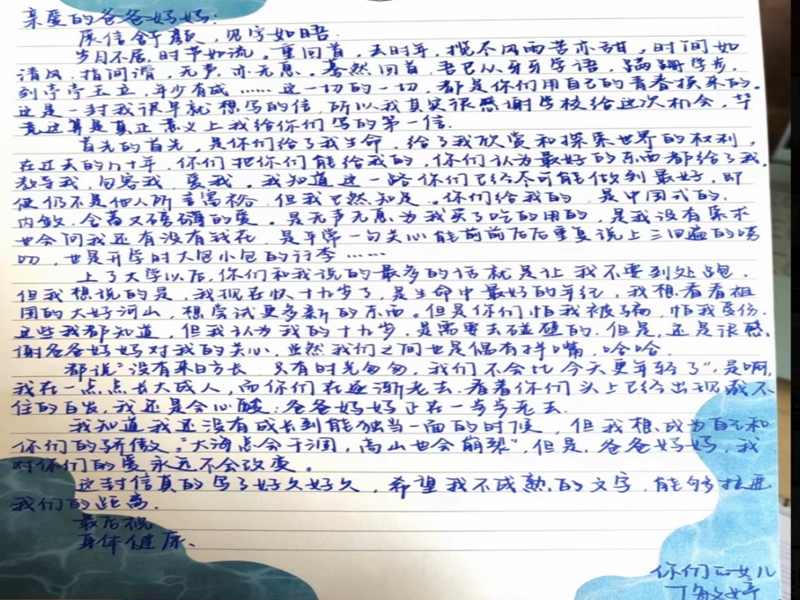 亲爱的爸爸妈妈:
展信舒颜,见字如晤.
岁月不居,时节如流。重回首,去时年,揽尽风雨苦亦甜,时间如
清风,指间滑,无声,亦无息。蓦然回首,吾已从牙牙学语,蹒跚学步,
到亭亭玉立,年少有成……这一切的一切,都是你们用自己的青春换来的。
这是一封我很早就想写的信,所以我真实很感谢学校给这次机会,毕
竟这算是真正意义上我给你们写的第一信.
首先的首先,是你们给了我生命,给了我欣赏和探索世界的权利,
在过去的几十年,你们把你们能给我的,你们认为最好的东西都给了我.
教导我,包容我,爱我。我知道这一路你们已经尽可能做到最好,即
使仍不是他人所言富裕,但我已然知足。你们给我的,是中国式的,
内敛.含蓄又磅礴的爱。是无声无息为我买了吃的用的,是我没有索求
也会问我还有没有钱花,是平常一句关心能前前后后重复说上三四遍的唠
叨,也是开学时大包小包的行李……
上了大学以后,你们和我说的最多的话就是让我不要到处跑,
但我想说的是,我现在快十九岁了,是生命中最好的年纪,我想看看祖
国的大好河山,想尝试更多新的东西。但是你们怕我被骗,怕我受伤,
这些我都知道,但我认为我的十九岁,是需要去碰壁的.但是,还是很感
谢爸爸妈妈对我的关心,虽然我们之间也是偶有拌嘴,哈哈.
都说"没有来日方长,只有时光匆匆,我们不会比今天更年轻了",是啊,
我在一点点长大成人,而你们在逐渐老去.看着你们头上已经出现藏不
住的白发,我还是会心酸:爸爸妈妈正在一步步老去.
我知道我还没有成长到能独当一面的时候,但我想成为自己和
你们的骄傲。"大海总会干涸,高山也会崩裂",但是,爸爸妈妈,我
对你们的爱永远不会改变。
这封信真的写了好久好久,希望我不成熟的文字,能够拉近
我们的距离.
最后祝
身体健康.
你们的女儿
丁敏婷